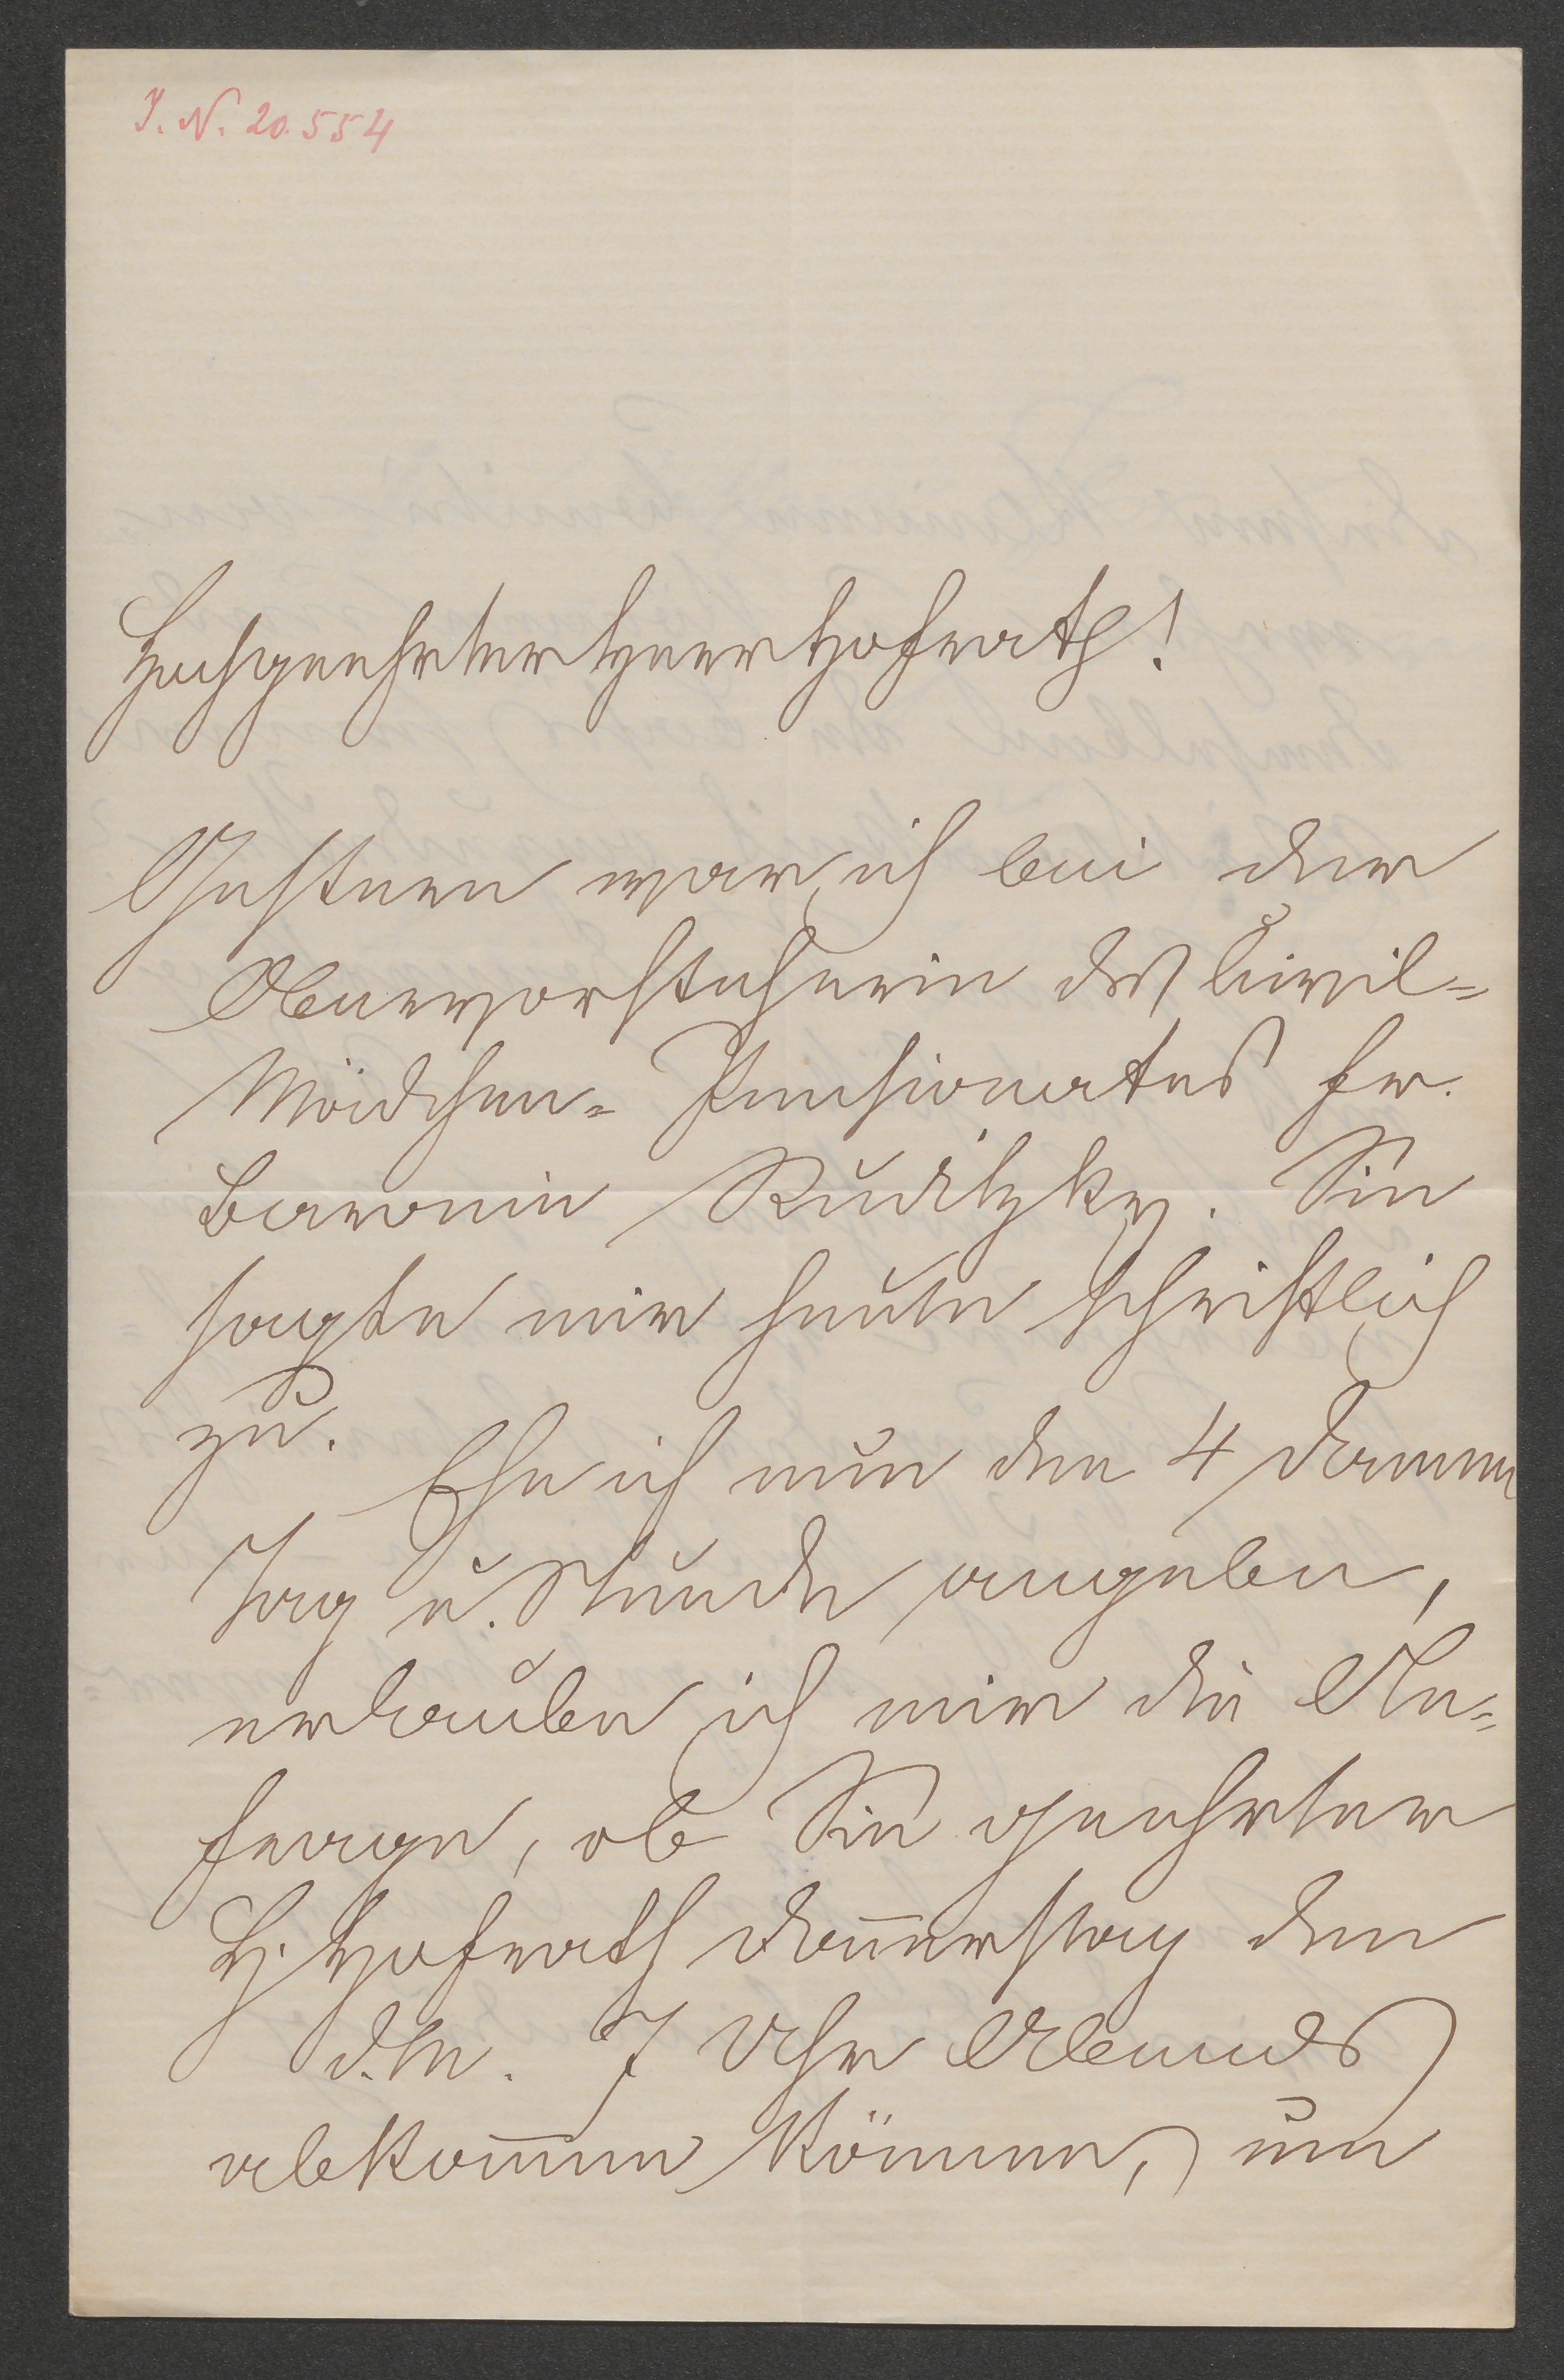 J. N. 20.554
Hochgeehrter Herr Hofrath!
Gestern war ich bei der
Obervorsteherin des Civil=
Mädchen= Pensionates Fr.
Baronin Rŭditzky. Sie
sagte mir heŭte schriftlich
zŭ.
Ehe ich nŭn den 4 Damen
Tag ŭ. Stŭnde angebe,
erlaŭbe ich mir die An=
frage, ob Sie geehrter
H. Hofrath Don̄erstag den
d. M. 7 Uhr Abends
abkom̄en können, ŭm